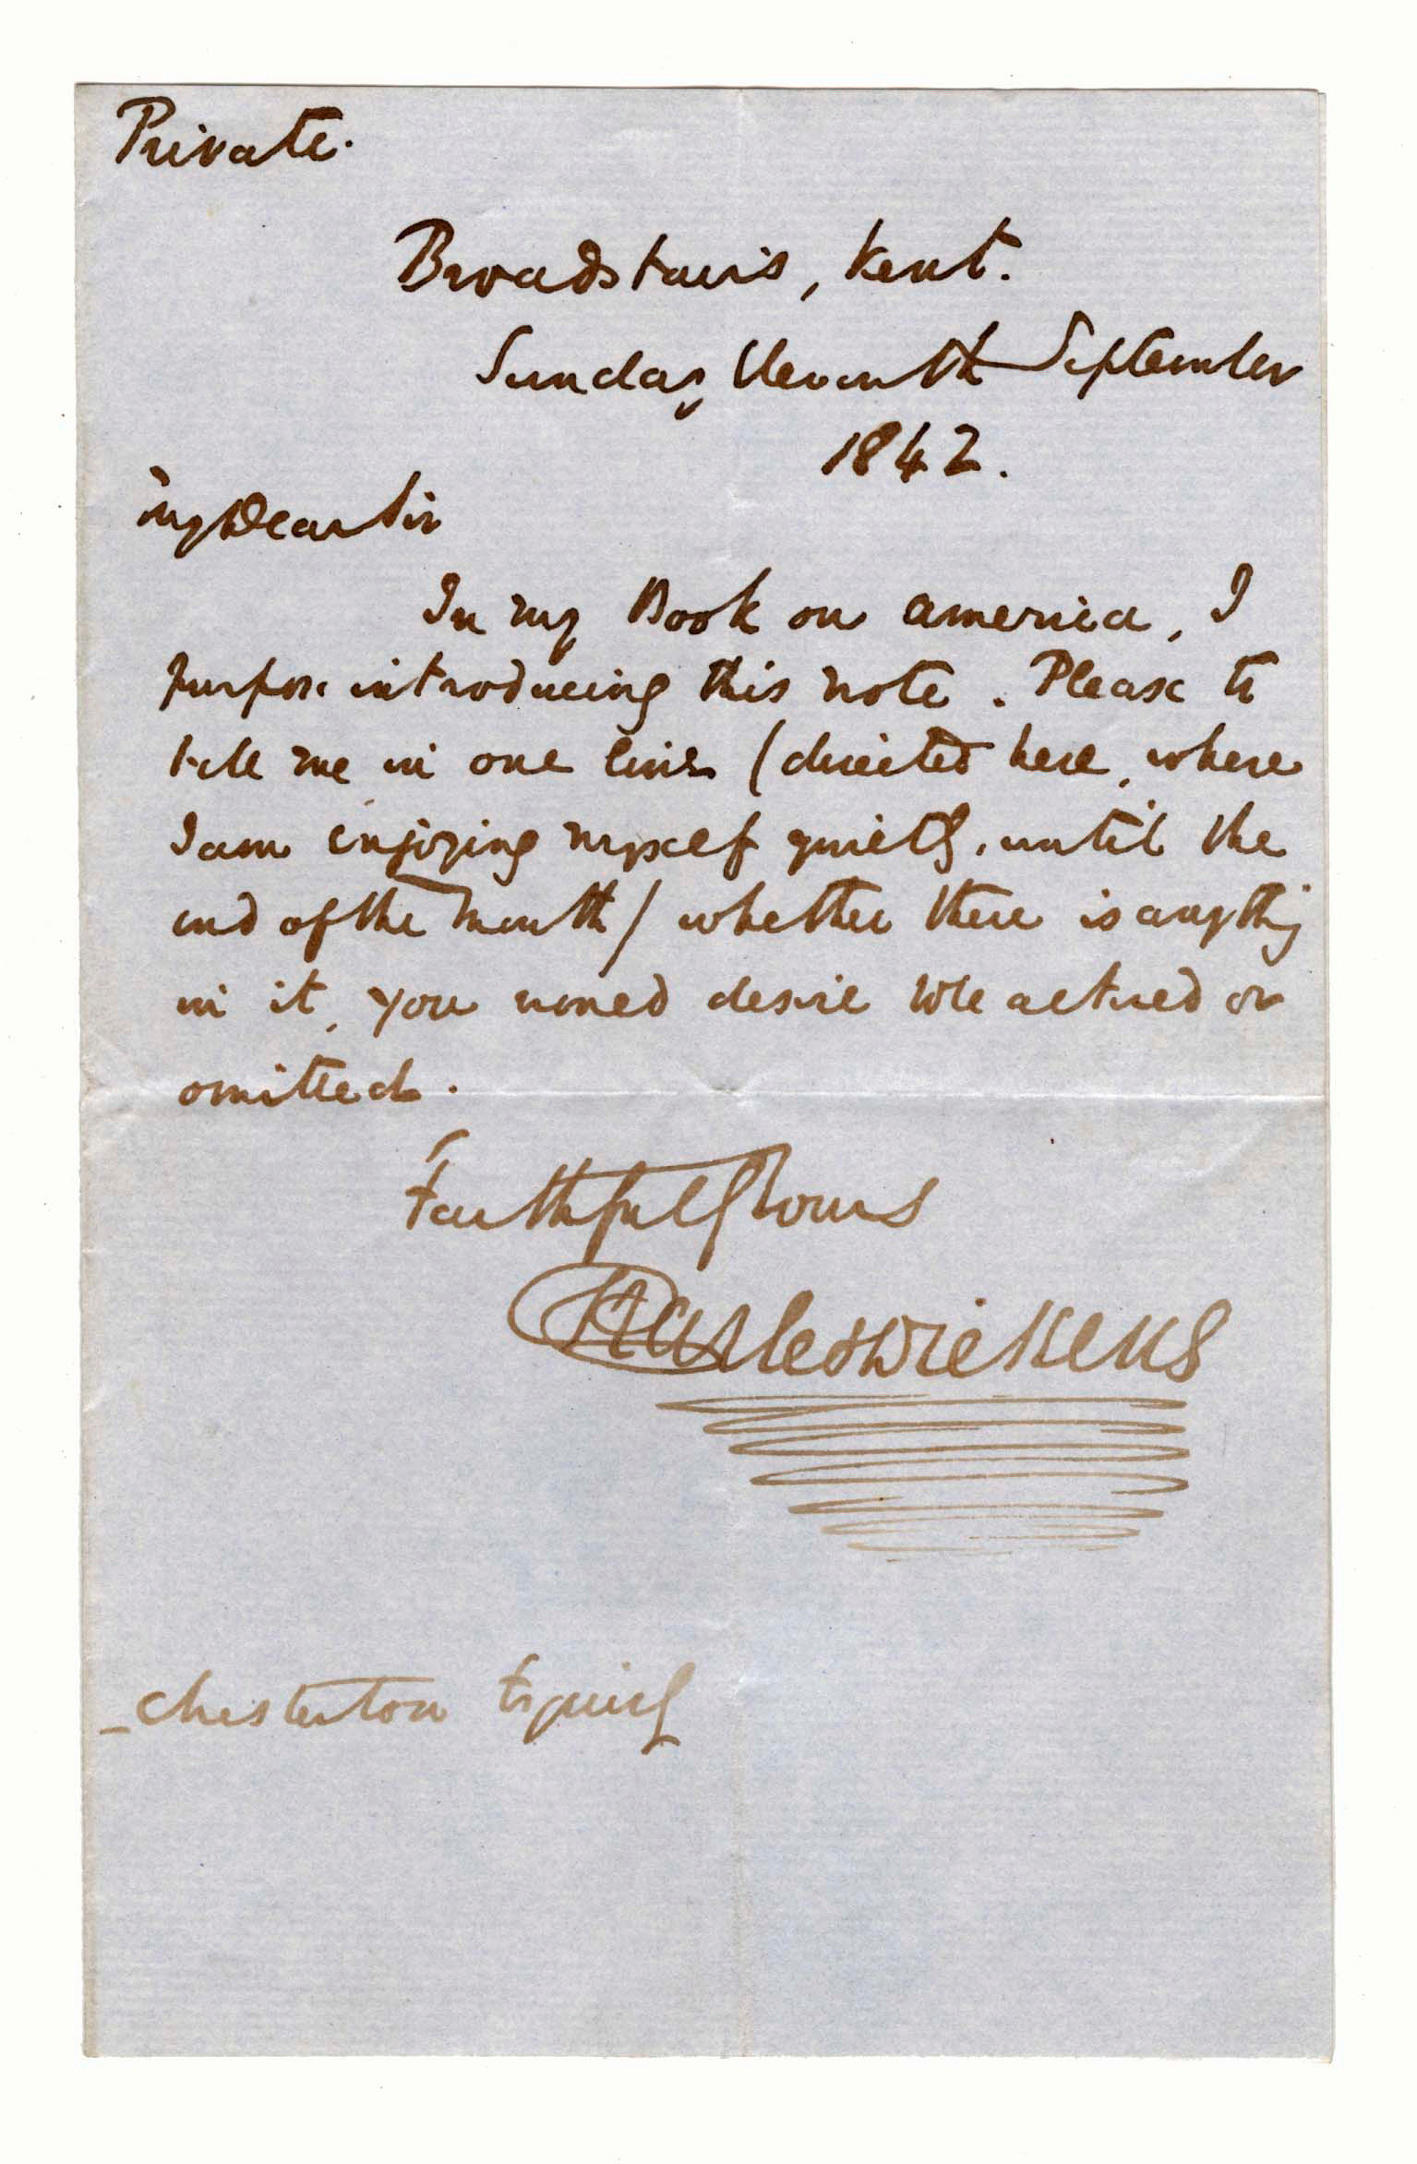 Private.
Broadstairs, Kent.
Sunday Eleventh September
1842.
My Dear Sir
In my Book on America, I
purpose introducing this note. Please to
tell me in one line (directed here, where
I am enjoying myself quietly, until the
end of the month) whether there is anything
in it, you would desire to be altered or
omitted.
Faithfully Yours
Charles Dickens
_ Chesterton Esquire